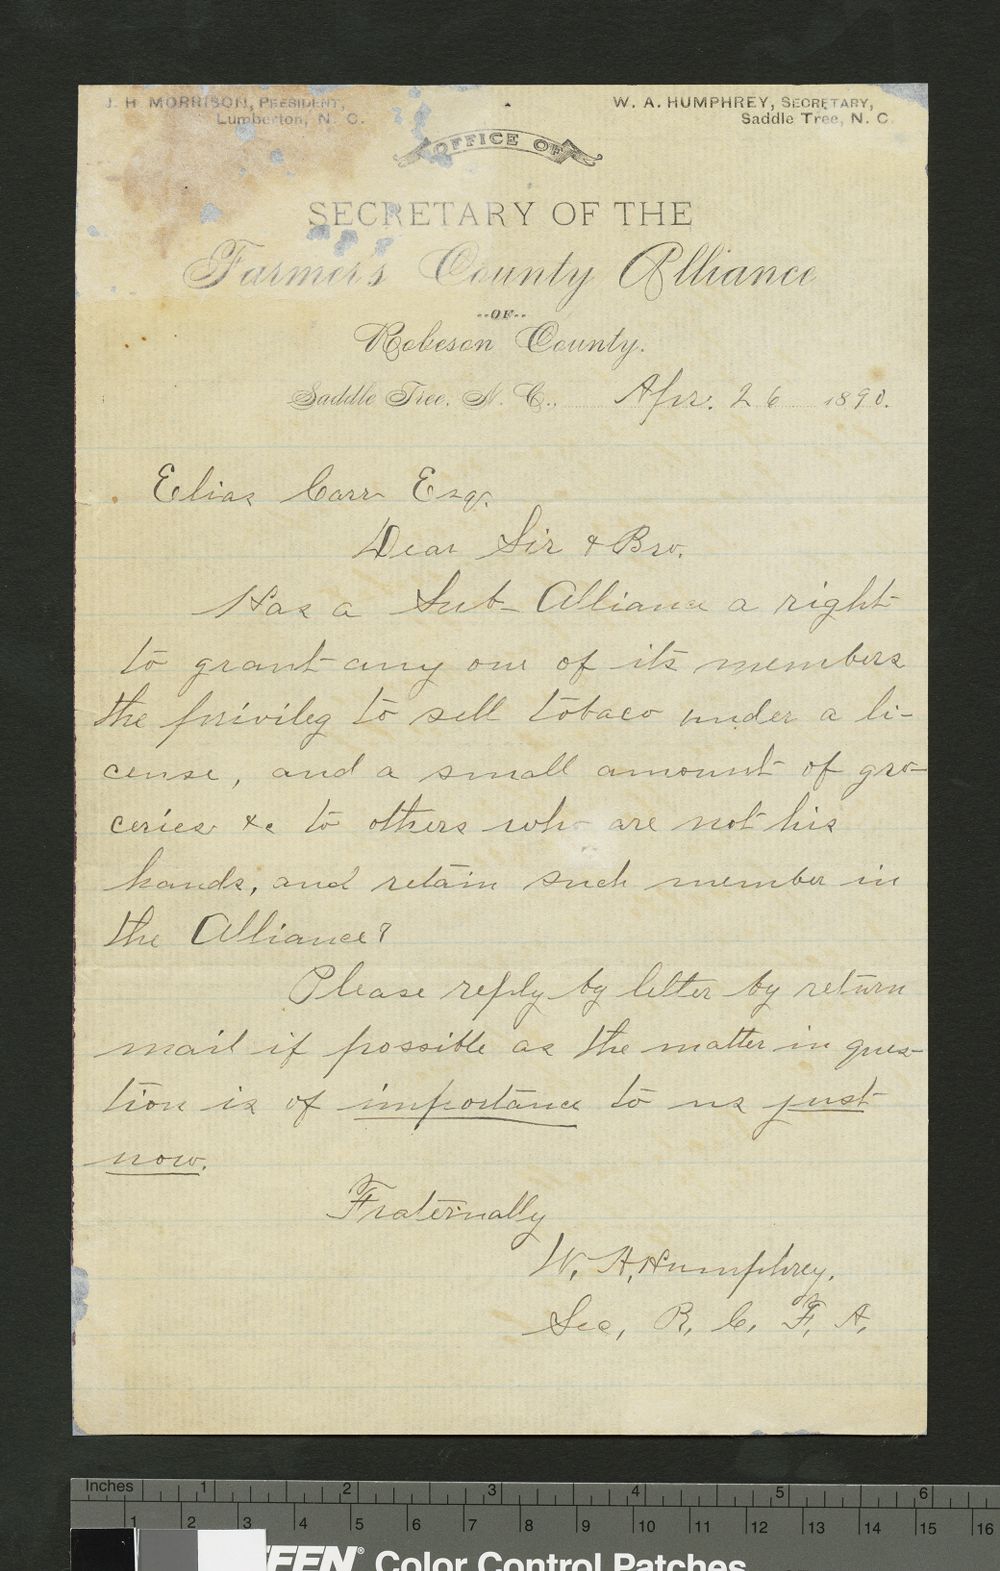 J. H. MORRISON, PRESIDENT,
Lumberton, N. C.
W. A. HUMPHREY, SECRETARY,
Saddle Tree, N. C.
OFFICE OF
SECRETARY OF THE
Farmer's County Alliance
--OF--
Robeson County.
Saddle Tree, N. C., Apr. 26 1890.
Elias Carr Esqr.
Dear Sir & Bro.
Has a Sub-Alliance a right
to grant any one of its members
the privileg to sell tobaco under a li-
cense, and a small amount of gro-
ceries &c to others who are not his
hands, and retain such member in
the Alliance?
Please reply by letter by return
mail if possible as the matter in ques-
tion is of importance to us just
now.
Fraternally
W. A. Humphrey,
Sec, R. C. F. A.
Inches 1 2 3 4 5 6
1 2 3 4 5 6 7 8 9 10 11 12 13 14 15 16
Color Control Patches